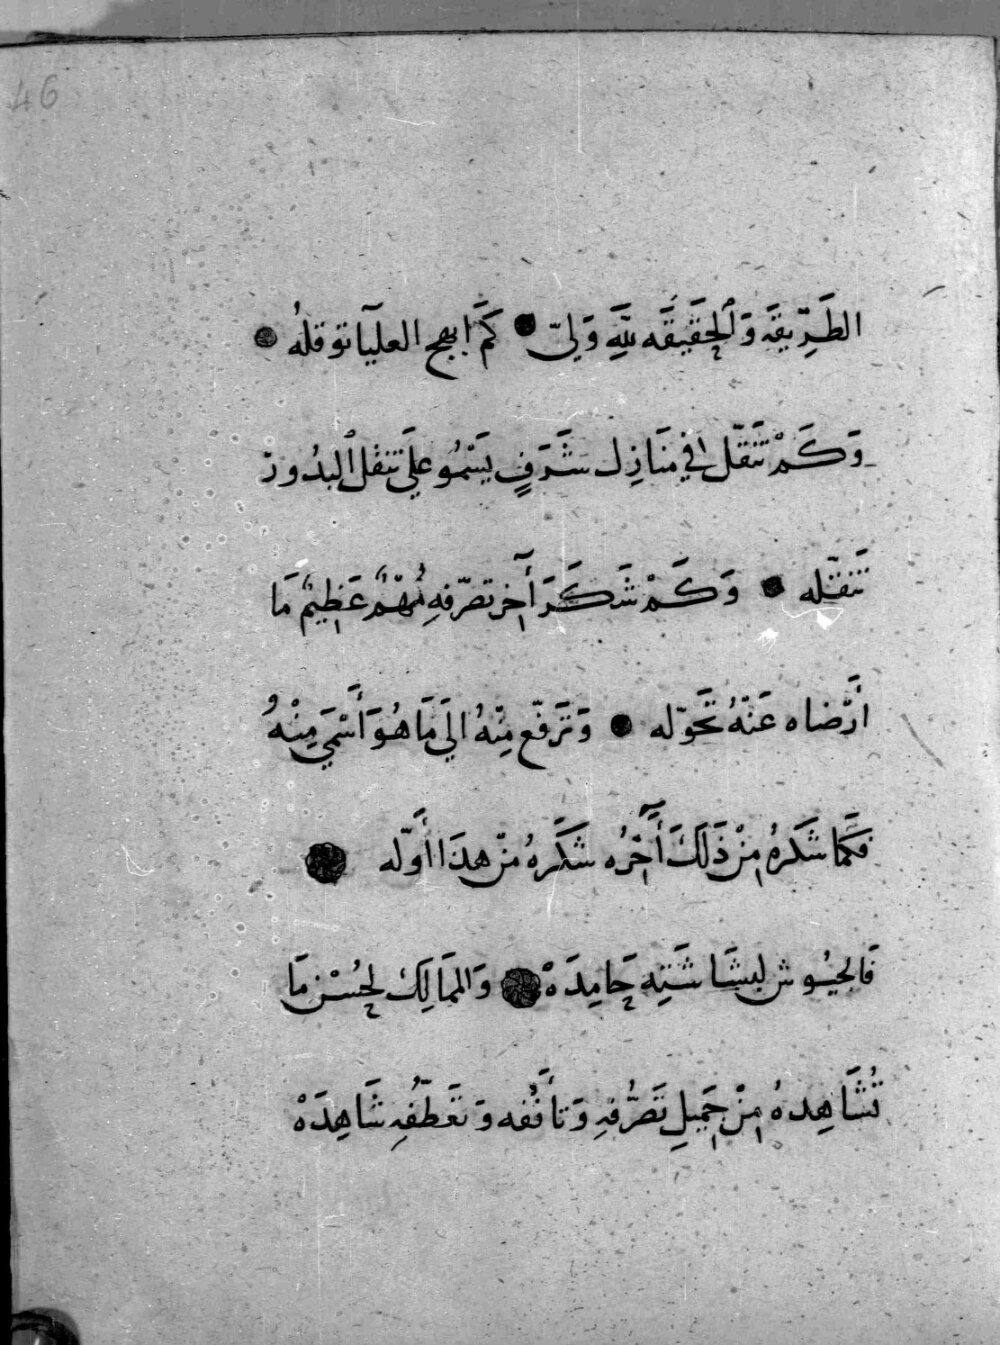 46
الطَّرِيقَه وَٱلْحَقِيقَه لِلَّهِ وَلِيّ ● كَمَ ابهج العليآ توقلهُ ●
وَكَمْ تَنَقّل في مَنَازِل شَرَفٍ يَسْمُو علَى تنقل ٱلبدُور
تَنقّله ● وَكَمْ شَكَرَ أَخر تصرّفهِ مُهْمٌ عَظِيمٌ مَا
أَرْضاه عَنْهُ تَحَوّله ● وَتَرَفّع مِنْهُ الَي مَا هُوَ أَسْمَي مِنْهُ
فَكَمَا شَكَرهُ مِنْ ذَلكَ أَخرُه شَكَرهُ منْ هذَا أَوّله
فَالجيُوش لبشَاشَتِه حَامِدَهْ وَالممَالِك لحُسْن مَا
تُشَاهِدهُ مِنْ جَمِيلِ تَصَرُّفِهِ وَتأَفُّفه وَتَعَطّفِهِ شَاهِدَهْ